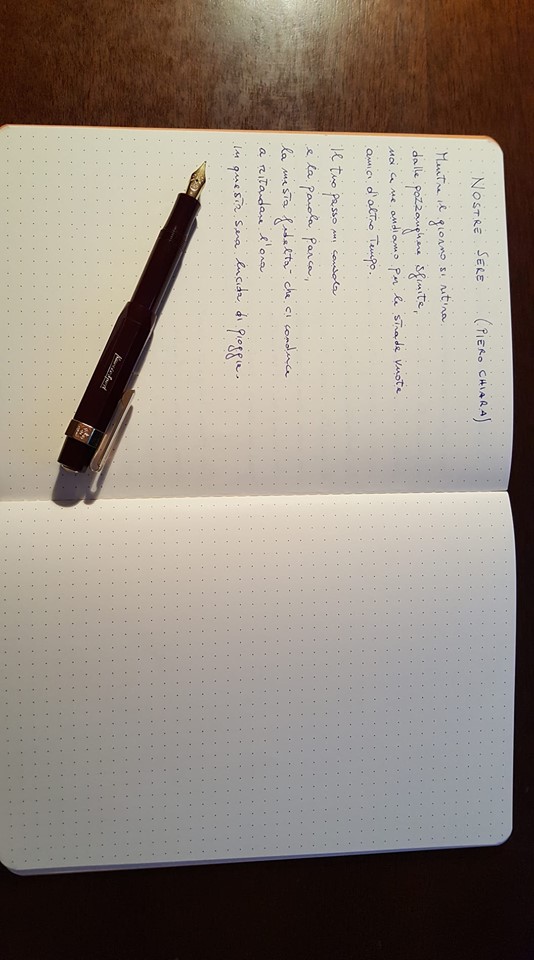 NOSTRE SERE (PIERO CHIARA)
Mentre il giorno si ritira
dalle pozzanghere sfinite,
noi ce ne andiamo per le strade vuote
amici d'altro tempo.
Il tuo passo mi consola
e la parola parca,
la mesta fedeltà che ci conduce
a ritardare l'ora
in questa sera lucida di pioggia.